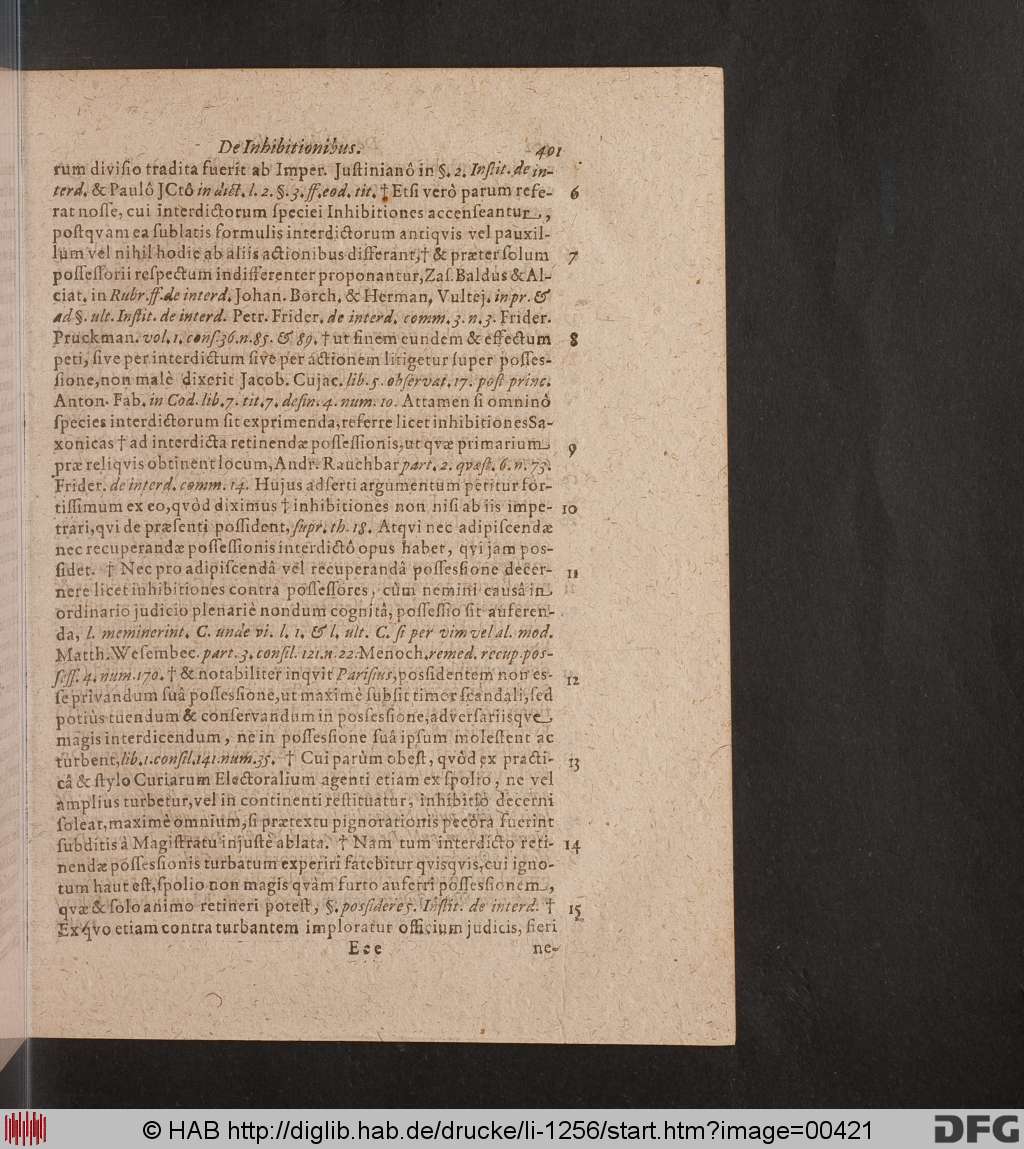 De Inhibitionibus. 401
rum diviſio tradita fuerit ab Imper. Juſtinianô in §. 2. Inſtit. de in-
terd. & Paulô JCtô in dict. l. 2. §. 3. ff. eod. tit. † Etſi verò parum refe- 6
rat noſſe, cui interdictorum ſpeciei Inhibitiones accenſeantur,
poſtqvam ea ſublatis formulis interdictorum antiqvis vel pauxil-
lùm vel nihil hodie ab aliis actionibus differant, † & præter ſolum 7
poſſeſſorii reſpectum indifferenter proponantur, Zaſ. Baldus & Al-
ciat. in Rubr. ff. de interd. Johan. Borch. & Herman. Vultej. in pr. &
ad §. ult. Inſtit. de interd. Petr. Frider. de interd. comm. 3. n. 3. Frider.
Pruckman. vol. 1. conſ. 36. n. 85. & 89. † ut finem eundem & effectum 8
peti, ſive per interdictum ſive per actionem litigetur ſuper poſſeſ-
ſione, non malè dixerit Jacob. Cujac. lib. 5. obſervat. 17. poſt princ.
Anton. Fab. in Cod. lib. 7. tit. 7. defin. 4. num. 10. Attamen ſi omninò
ſpecies interdictorum ſit exprimenda, referre licet inhibitiones Sa-
xonicas † ad interdicta retinendæ poſſeſſionis, ut qvæ primarium 9
præ reliqvis obtinent locum, Andr. Rauchbar part. 2. qvæſt. 6. n. 73.
Frider. de interd. comm. 14. Hujus adſerti argumentum petitur for-
tiſſimum ex eo, qvòd diximus † inhibitiones non niſi ab iis impe- 10
trari, qvi de præſenti poſſident, ſupr. th. 18. Atqvi nec adipiſcendæ
nec recuperandæ poſſeſſionis interdictô opus habet, qvi jam poſ-
ſidet. † Nec pro adipiſcendâ vel recuperandâ poſſeſſione decer- 11
nere licet inhibitiones contra poſſeſſores, cùm nemini causâ in
ordinario judicio plenariè nondum cognitâ, poſſeſſio ſit auferen-
da, l. meminerint. C. unde vi. l. 1. & l. ult. C. ſi per vim vel al. mod.
Matth. Weſembec. part. 3. conſil. 121. n. 22. Menoch. remed. recup. poſ-
ſeſſ. 4. num. 170. † & notabiliter inqvit Pariſius, poſſidentem non eſ- 12
ſe privandum ſuâ poſſeſſione, ut maximè ſubſit timor ſcandali, ſed
potiùs tuendum & conſervandum in poſſeſſione, adverſariisqve
magis interdicendum, ne in poſſeſſione ſuâ ipſum moleſtent ac
turbent, lib. 1. conſil. 141. num. 35. † Cui parùm obeſt, qvôd ex practi- 13
câ & ſtylo Curiarum Electoralium agenti etiam ex ſpolio, ne vel
amplius turbetur, vel in continenti reſtituatur, inhibitio decerni
ſoleat, maximè omnium, ſi prætextu pignorationis pecora fuerint
ſubditis à Magiſtratu injuſtè ablata. † Nam tum interdicto reti- 14
nendæ poſſeſſionis turbatum experiri fatebitur qvisqvis, cui igno-
tum haut eſt, ſpolio non magis qvàm furto auferri poſſeſſionem,
qvæ & ſolo animo retineri poteſt, §. poſſidere 5. Inſtit. de interd. † 15
Ex qvo etiam contra turbantem imploratur officium judicis, fieri
Eee ne-
© HAB http://diglib.hab.de/drucke/li-1256/start.htm?image=00421
DFG